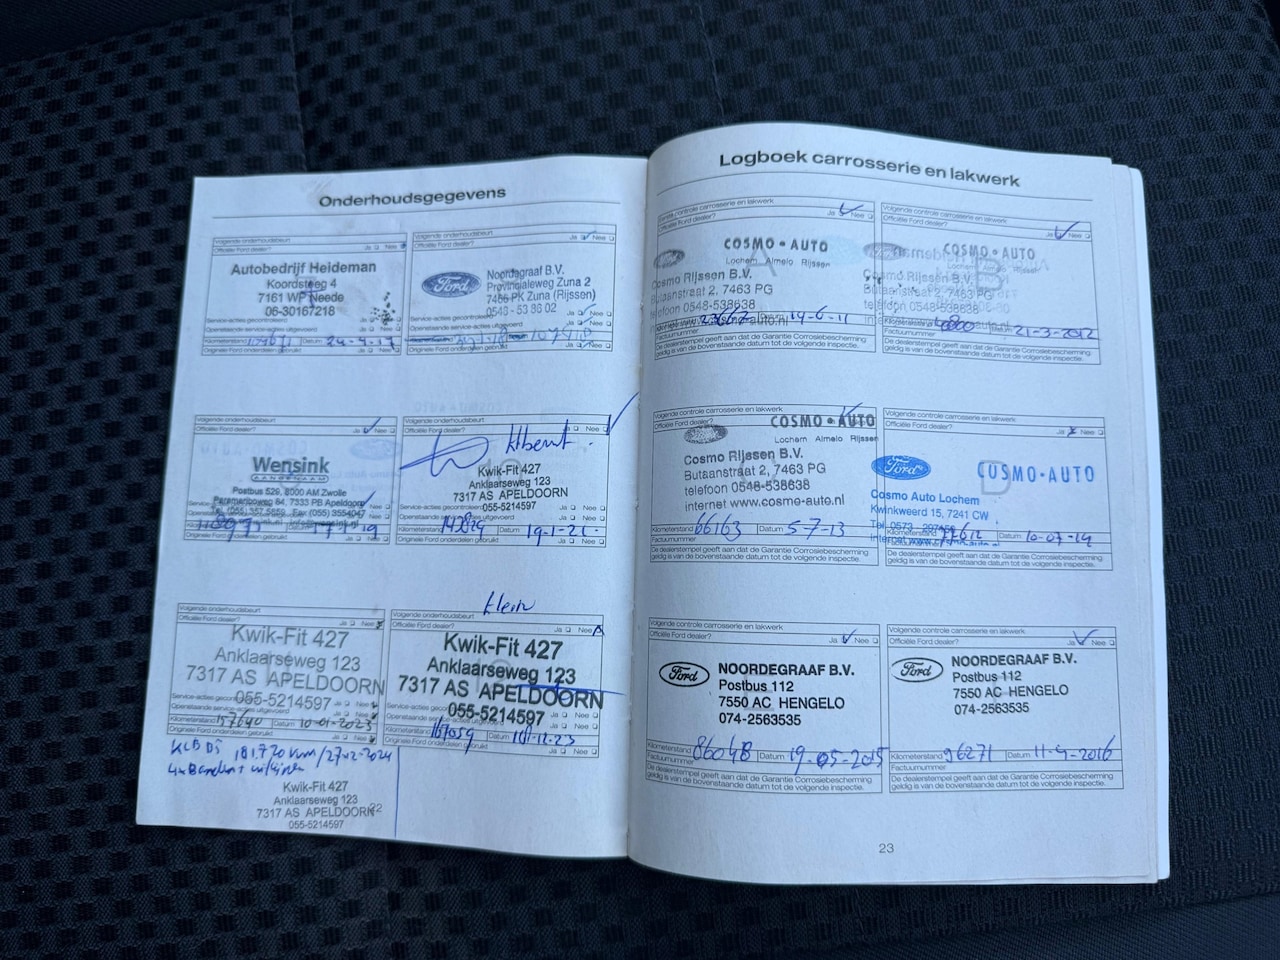 Onderhoudsgegevens
Volgende onderhoudsbeurt
Officiële Ford dealer? Ja Nee
Autobedrijf Heideman
Koordsteeg 4
7161 WP Neede
06-30167218
Service-acties gecontroleerd
Openstaande service-acties uitgevoerd
Kilometerstand Datum 24-4-17
Originele Ford onderdelen gebruikt Ja Nee
Volgende onderhoudsbeurt
Officiële Ford dealer? Ja Nee
Ford
Noordegraaf B.V.
Provincialeweg Zuna 2
7466 PK Zuna (Rijssen)
0548 - 53 86 02
Service-acties gecontroleerd Ja Nee
Openstaande service-acties uitgevoerd Ja Nee
Originele Ford onderdelen gebruikt Ja Nee
Volgende onderhoudsbeurt
Officiële Ford dealer? Ja Nee
Wensink
Postbus 529, 8000 AM Zwolle
7333 PB Apeldoorn
Tel. (055) 357 5859 Fax (055) 3554047
Originele Ford onderdelen gebruikt
Volgende onderhoudsbeurt
Officiële Ford dealer? Ja Nee
Kwik-Fit 427
Anklaarseweg 123
7317 AS APELDOORN
055-5214597
Kilometerstand 140829 Datum 19-1-21
Originele Ford onderdelen gebruikt Ja Nee
Volgende onderhoudsbeurt
Officiële Ford dealer? Ja Nee
Kwik-Fit 427
Anklaarseweg 123
7317 AS APELDOORN
055-5214597
Kilometerstand 157640 Datum 10-01-2023
Originele Ford onderdelen gebruikt Ja Nee
klein
Volgende onderhoudsbeurt
Officiële Ford dealer? Ja Nee
Kwik-Fit 427
Anklaarseweg 123
7317 AS APELDOORN
055-5214597
Kilometerstand 167059 Datum
Originele Ford onderdelen gebruikt Ja Nee
181.720 km/27-12-2024
Kwik-Fit 427
Anklaarseweg 123
7317 AS APELDOORN
055-5214597
22
Logboek carrosserie en lakwerk
Volgende controle carrosserie en lakwerk
Officiële Ford dealer? Ja Nee
COSMO • AUTO
Lochem Almelo Rijssen
Cosmo Rijssen B.V.
Butaanstraat 2, 7463 PG
telefoon 0548-538638
Datum 14-6-11
Factuurnummer
De dealerstempel geeft aan dat de Garantie Corrosiebescherming
geldig is van de bovenstaande datum tot de volgende inspectie.
Volgende controle carrosserie en lakwerk
Officiële Ford dealer? Ja Nee
COSMO • AUTO
Lochem Almelo Rijssen
Cosmo Rijssen B.V.
Butaanstraat 2, 7463 PG
telefoon 0548-538638
Kilometerstand Datum 21-3-2012
Factuurnummer
De dealerstempel geeft aan dat de Garantie Corrosiebescherming
geldig is van de bovenstaande datum tot de volgende inspectie.
Volgende controle carrosserie en lakwerk
Officiële Ford dealer?
COSMO • AUTO
Lochem Almelo Rijssen
Cosmo Rijssen B.V.
Butaanstraat 2, 7463 PG
telefoon 0548-538638
internet www.cosmo-auto.nl
Kilometerstand 66163 Datum 5-7-13
Factuurnummer
De dealerstempel geeft aan dat de Garantie Corrosiebescherming
geldig is van de bovenstaande datum tot de volgende inspectie.
Volgende controle carrosserie en lakwerk
Officiële Ford dealer? Ja Nee
Ford COSMO•AUTO
Cosmo Auto Lochem
Kwinkweerd 15, 7241 CW
Kilometerstand 77612 Datum 10-07-14
De dealerstempel geeft aan dat de Garantie Corrosiebescherming
geldig is van de bovenstaande datum tot de volgende inspectie.
Volgende controle carrosserie en lakwerk
Officiële Ford dealer? Ja Nee
Ford
NOORDEGRAAF B.V.
Postbus 112
7550 AC HENGELO
074-2563535
Kilometerstand 86048 Datum 19-05-2015
Factuurnummer
De dealerstempel geeft aan dat de Garantie Corrosiebescherming
geldig is van de bovenstaande datum tot de volgende inspectie.
Volgende controle carrosserie en lakwerk
Officiële Ford dealer? Ja Nee
Ford
NOORDEGRAAF B.V.
Postbus 112
7550 AC HENGELO
074-2563535
Kilometerstand 96271 Datum 11-4-2016
Factuurnummer
De dealerstempel geeft aan dat de Garantie Corrosiebescherming
geldig is van de bovenstaande datum tot de volgende inspectie.
23